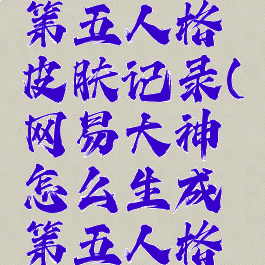 第五人格
皮肤记录(
网易大神
怎么生成
第五人格